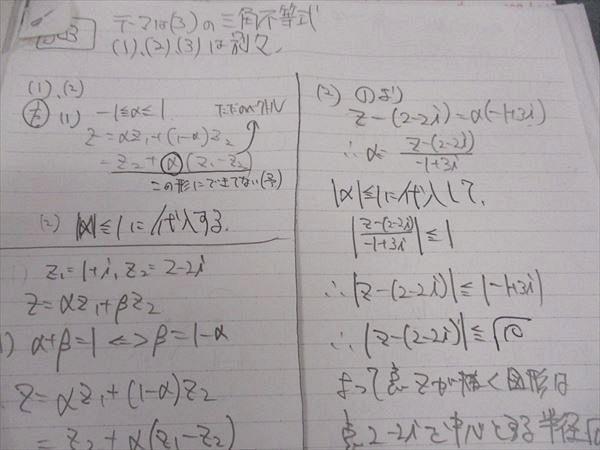 テーマは(3)の三角不等式
(1),(2),(3)は別々,
(1),(2)
(1) -1≦α≦1 ただのベクトル
z=αz₁+(1-α)z₂
=z₂+α(z₁-z₂)
この形にできてない
(2) |α|≦1に代入する.
z₁=1+i, z₂=2-2i
z=αz₁+βz₂
1) α+β=1⇔β=1-α
z=αz₁+(1-α)z₂
=z₂+α(z₁-z₂)
(2) ①より
z-(2-2i)=α(-1+3i)
∴α=\frac{z-(2-2i)}{-1+3i}
|α|≦1に代入して,
|\frac{z-(2-2i)}{-1+3i}|≦1
∴|z-(2-2i)|≦|-1+3i|
∴|z-(2-2i)|≦√10
よって点zが描く図形は
点2-2iを中心とする半径√10